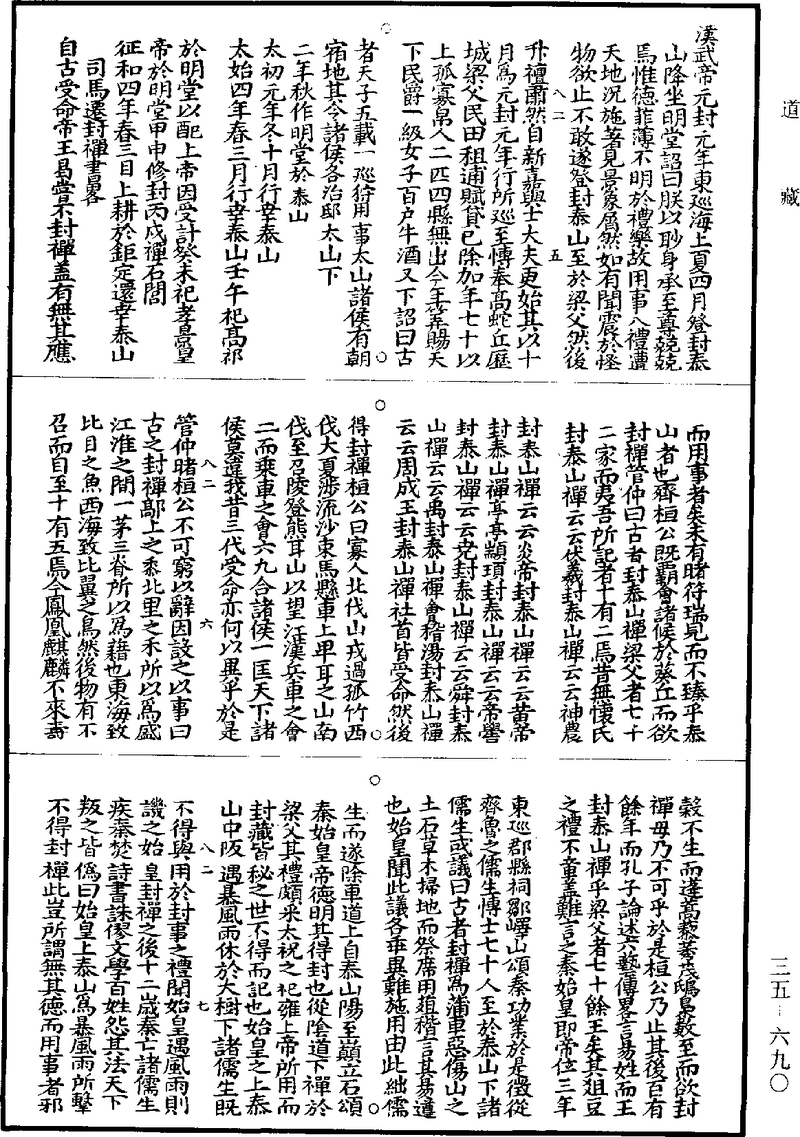 道藏
漢武帝元封元年東巡海上夏四月登封泰
山降坐明堂詔曰朕以眇身承至尊兢兢
焉惟德菲薄不明於禮樂故用事八禮遭
天地況施著見景象屑然如有聞震於怪
物欲止不敢遂登封泰山至於梁父然後
八二
五
升禮肅然自新嘉與士大夫更始其以十
月為元封元年行所巡至愽奉高蛇丘歷
城梁父民田租逋賦貸已除加年七十以
上孤寡帛人二匹四縣無出今年筭賜天
下民爵一級女子百户牛酒又下詔曰古
者天子五載一巡狩用事太山諸侯有朝
宿地其令諸侯各治邸太山下
二年秋作明堂於泰山
太初元年冬十月行幸泰山
太始四年春三月行幸泰山壬午祀高祁
於明堂以配上帝因受計癸未祀孝景皇
帝於明堂甲申修封丙戌禪石閭
征和四年春三月上耕於鉅定還幸泰山
司馬遷封禪書畧
自古受命帝王曷嘗不封禪蓋有無其應
而用事者矣未有睹符瑞見而不臻乎泰
山者也齊桓公既霸會諸候於葵丘而欲
封禪管仲曰古者封泰山禪梁父者七十
二家而夷吾所記者十有二焉昔無懷氏
封泰山禪云云伏羲封泰山禪云云神農
封泰山禪云云炎帝封泰山禪云云黄帝
封泰山禪亭亭顓頊封泰山禪云云帝嚳
封泰山禪云云尭封泰山禪云云舜封泰
山禪云云禹封泰山禪會稽湯封泰山禪
云云周成王封泰山禪社首皆受命然後
得封禪桓公曰寡人北伐山戎過孤竹西
伐大夏涉流沙束馬縣車上卑耳之山南
伐至召陵登熊耳山以望江漢兵車之會
二而乘車之會六九合諸侯一匡天下諸
侯莫違我昔三代受命亦何以異乎於是
八二
六
管仲睹桓公不可窮以辭因設之以事曰
古之封禪鄗上之黍北里之禾所以為盛
江淮之間一茅三脊所以為藉也東海致
比目之魚西海致比翼之鳥然後物有不
召而自至十有五焉今鳳凰麒麟不來嘉
穀不生而蓬蒿藜莠茂鴟梟數至而欲封
禪毋乃不可乎於是桓公乃止其後百有
餘年而孔子論述六藝傳畧言昜姓而王
封泰山禪乎梁父者七十餘王矣其俎豆
之禮不章蓋難言之秦始皇即帝位三年
東巡郡縣祠鄒嶧山頌秦功業於是徵從
齊魯之儒生愽士七十人至於泰山下諸
儒生或議曰古者封禪為蒲車惡傷山之
土石草木掃地而祭席用葅稭言其昜遵
也始皇聞此議各乖異難施用由此絀儒
生而遂除車道上自泰山陽至巔立石頌
秦始皇帝德明其得封也從陰道下禪於
梁父其禮頗采太祝之祀雍上帝所用而
封藏皆秘之世不得而記也始皇之上泰
山中阪遇暴風雨休於大樹下諸儒生既
八二
七
不得與用於封事之禮聞始皇遇風雨則
譏之始皇封禪之後十二歲秦亡諸儒生
疾秦焚詩書誅僇文學百姓怨其法天下
叛之皆僞曰始皇上泰山為暴風雨所擊
不得封禪此豈所謂無其德而用事者邪
三五—六九〇